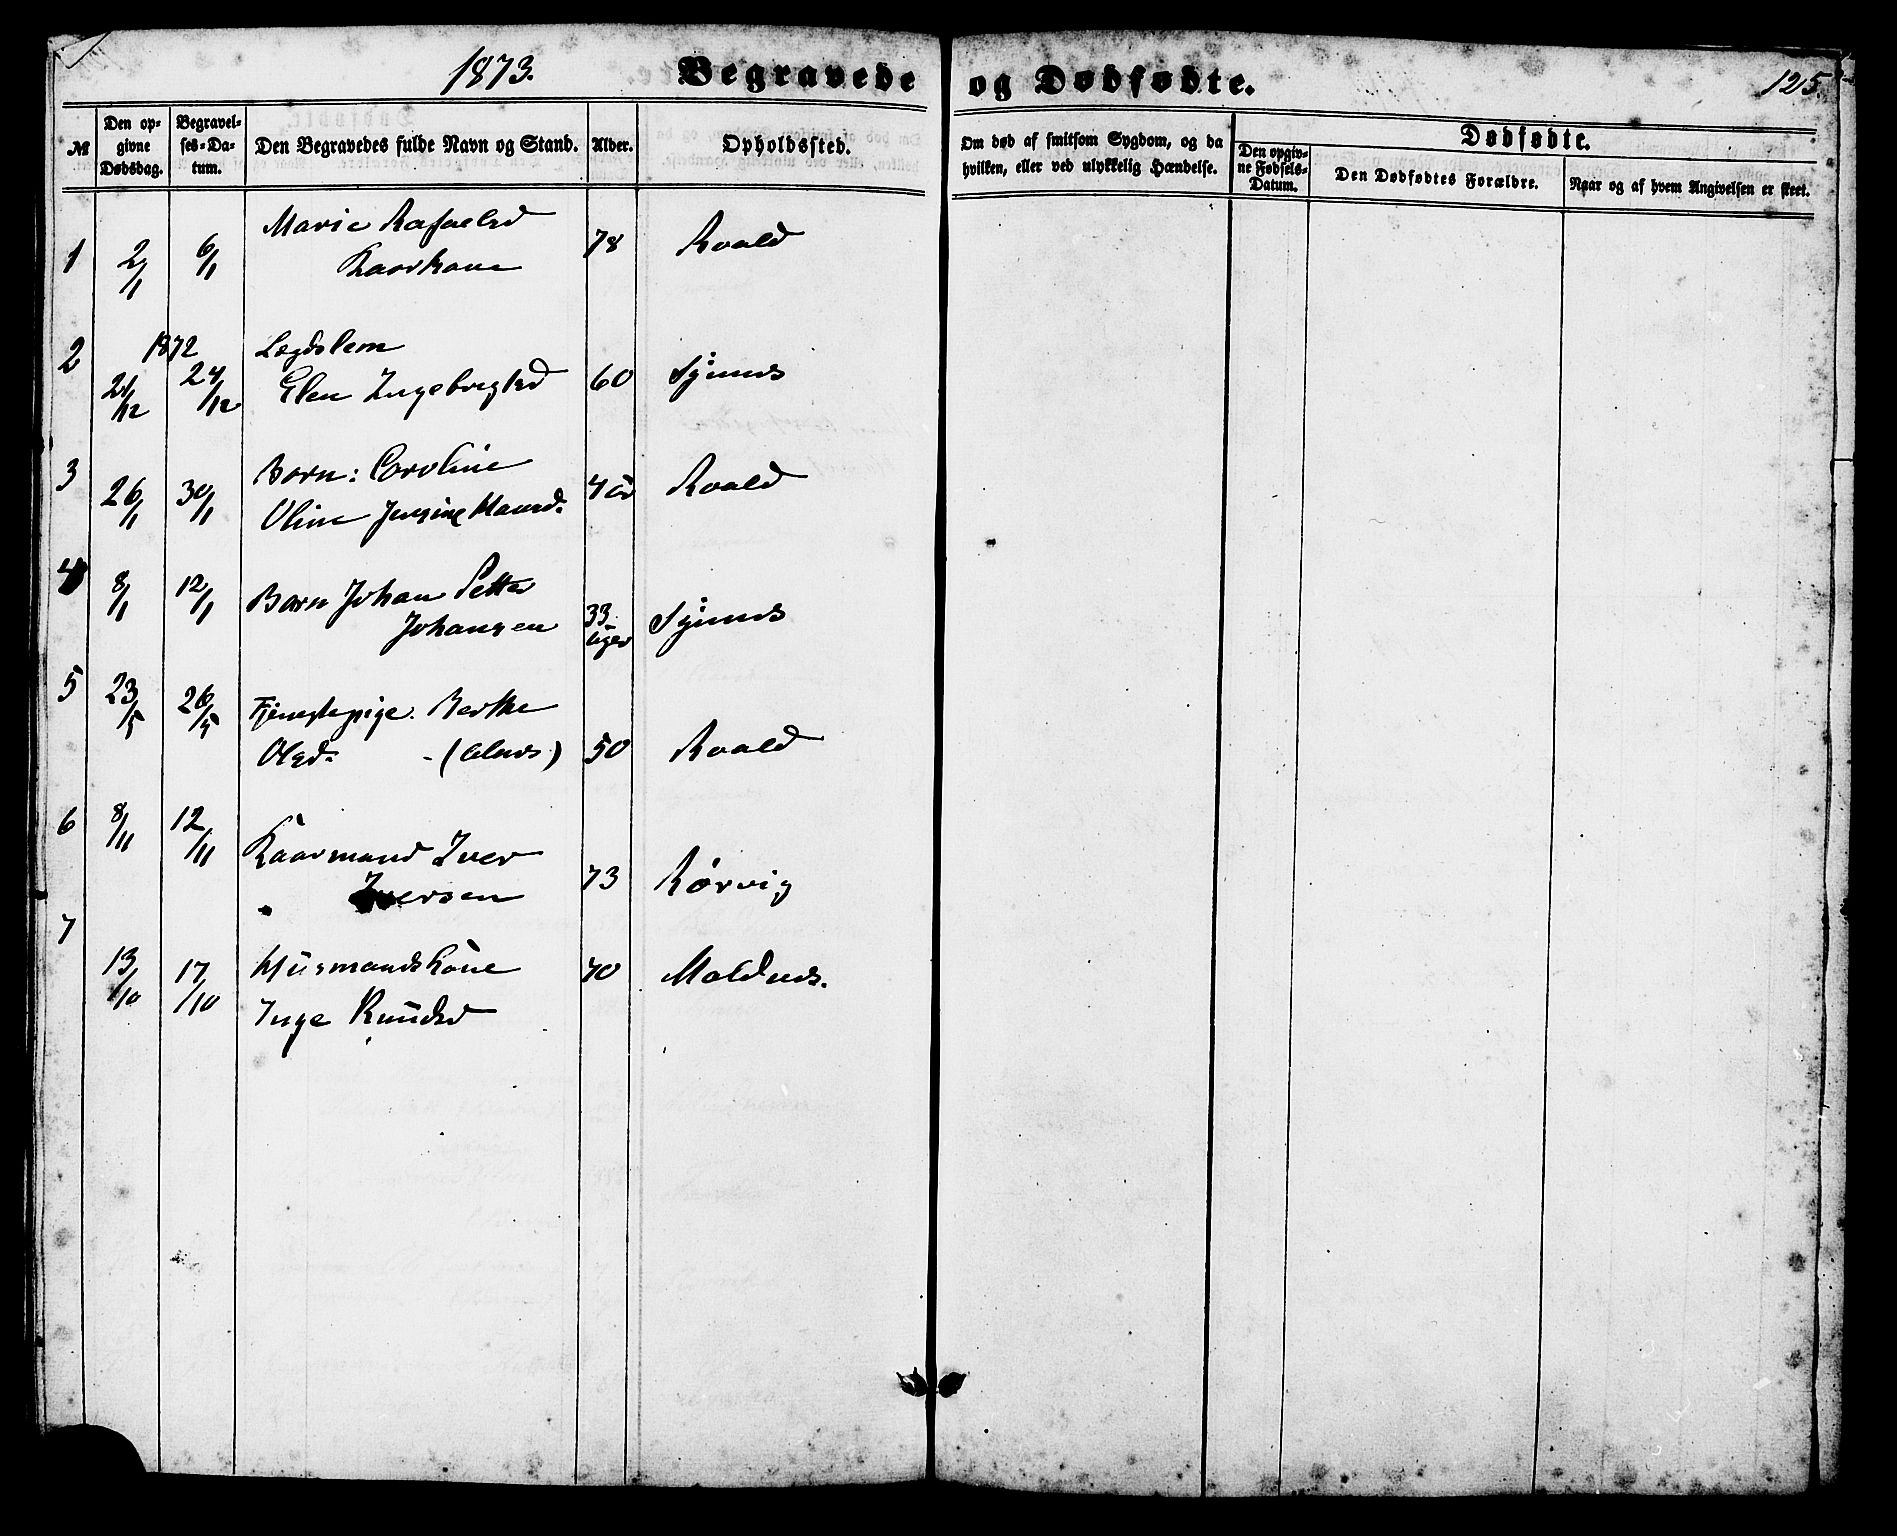 1873. Begravede og Dødfødte. 125.
№ Den opgivne Dødsdag. Begravelses-Datum. Den Begravedes fulde Navn og Stand. Alder. Opholdssted. Om død af smitsom Sygdom, og da hvilken, eller ved ulykkelig Hændelse. Dødfødte. Den opgivne Fødsels-Datum. Den Dødfødtes Forældre. Naar og af hvem Angivelsen er skeet.
1 2/1 6/1 Marie Rafaelsd 78 Roald
Kaarkone
2 1872 Lægdslem
21/12 24/12 Elen Ingebrigtsd 60 Synnes
3 26/1 30/1 Barn: Caroline 4 år Roald
Oline Jensine Hansd.
4 8/1 12/1 Barn Johan Petter 33 Synnes
Johansen uger
5 23/5 26/5 Tjenestepige. Berthe
Olsd. - ( ) 50 Roald
6 8/11 12/11 Kaarmand Iver 73 Rørvig
" Iversen
7 13/10 17/10 Huusmandskone 70 Moldnes.
Inge Knudsd